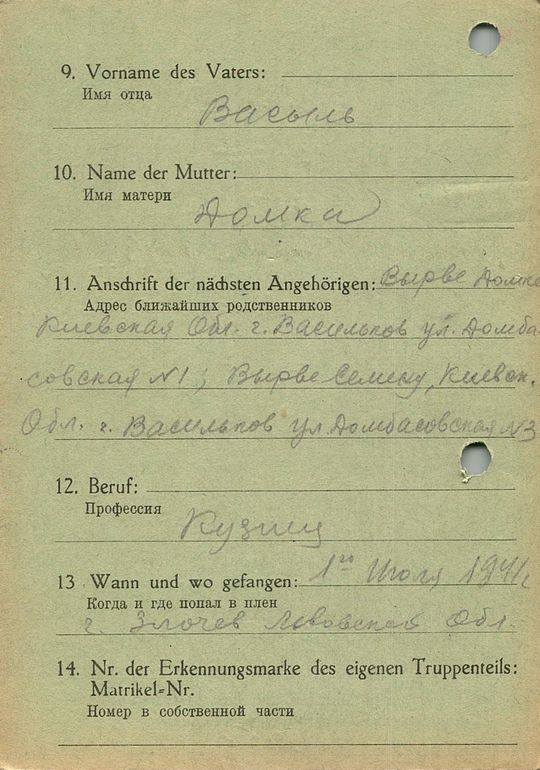 9. Vorname des Vaters:
Имя отца
Васыль
10. Name der Mutter:
Имя матери
Домка
11. Anschrift der nächsten Angehörigen: Вырве Домке
Адрес ближайших родственников
Киевская Обл. г. Васильков ул. Домба-
совская №1; Вырве Семену, Киевск.
Обл. г. Васильков ул Домбасовская №3
12. Beruf:
Профессия
Кузнец
13 Wann und wo gefangen: 1го Июля 1941г
Когда и где попал в плен
г. Злочев Львовской Обл.
14. Nr. der Erkennungsmarke des eigenen Truppenteils:
Matrikel=Nr.
Номер в собственной части